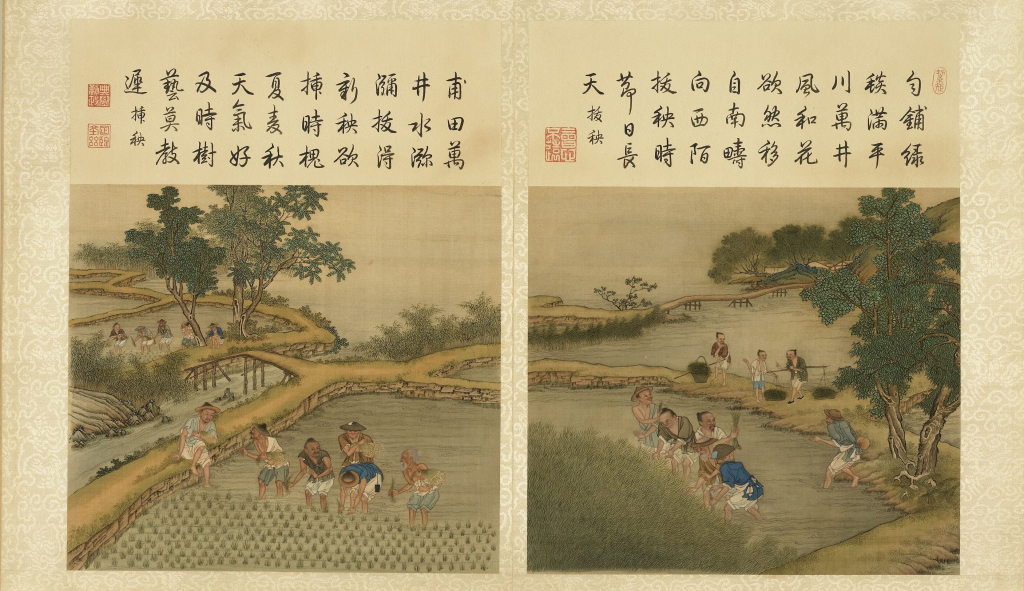 勻鋪綠
毯滿平
川萬井
風和花
欲然移
自南疇
向西陌
拔秧時
節日長
天 拔秧
甫田萬
井水㳽
瀰拔得
新秧欲
挿時槐
夏麦秋
天氣好
及時樹
藝莫教
遲 挿秧